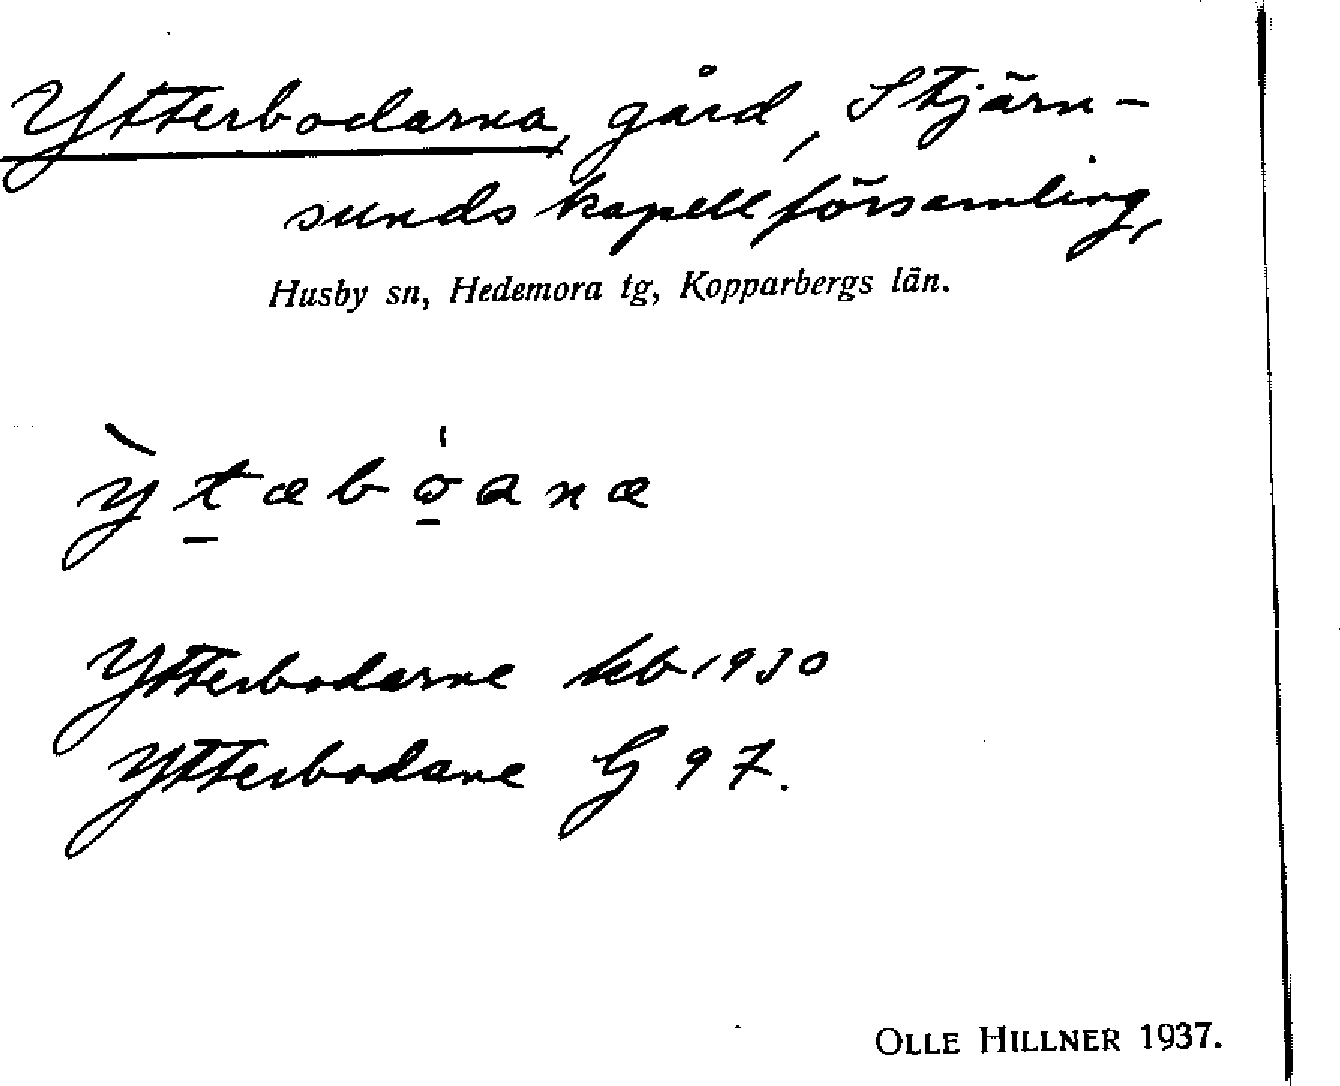 Ytterbodarna, gård, Stjärn-
sunds kapellförsamling,
Husby sn, Hedemora tg, Kopparbergs län.
ỳt̠æbo̠̍anæ
Ytterbodarne kb 1930
Ytterbodane G 97.
OLLE HILLNER 1937.